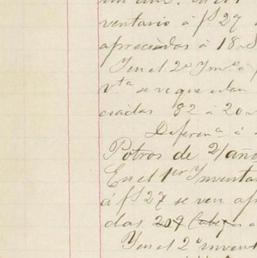 ventario á fs 27
apreciados á 18
Y en el 2º Inv
vta se ve que estan
ciadas 82 á 20
Diferena á
Potros de 2 años
En el 1er Inventa
á fs 27 se ven ap
das 209 Cabe
Y en el 2º invent